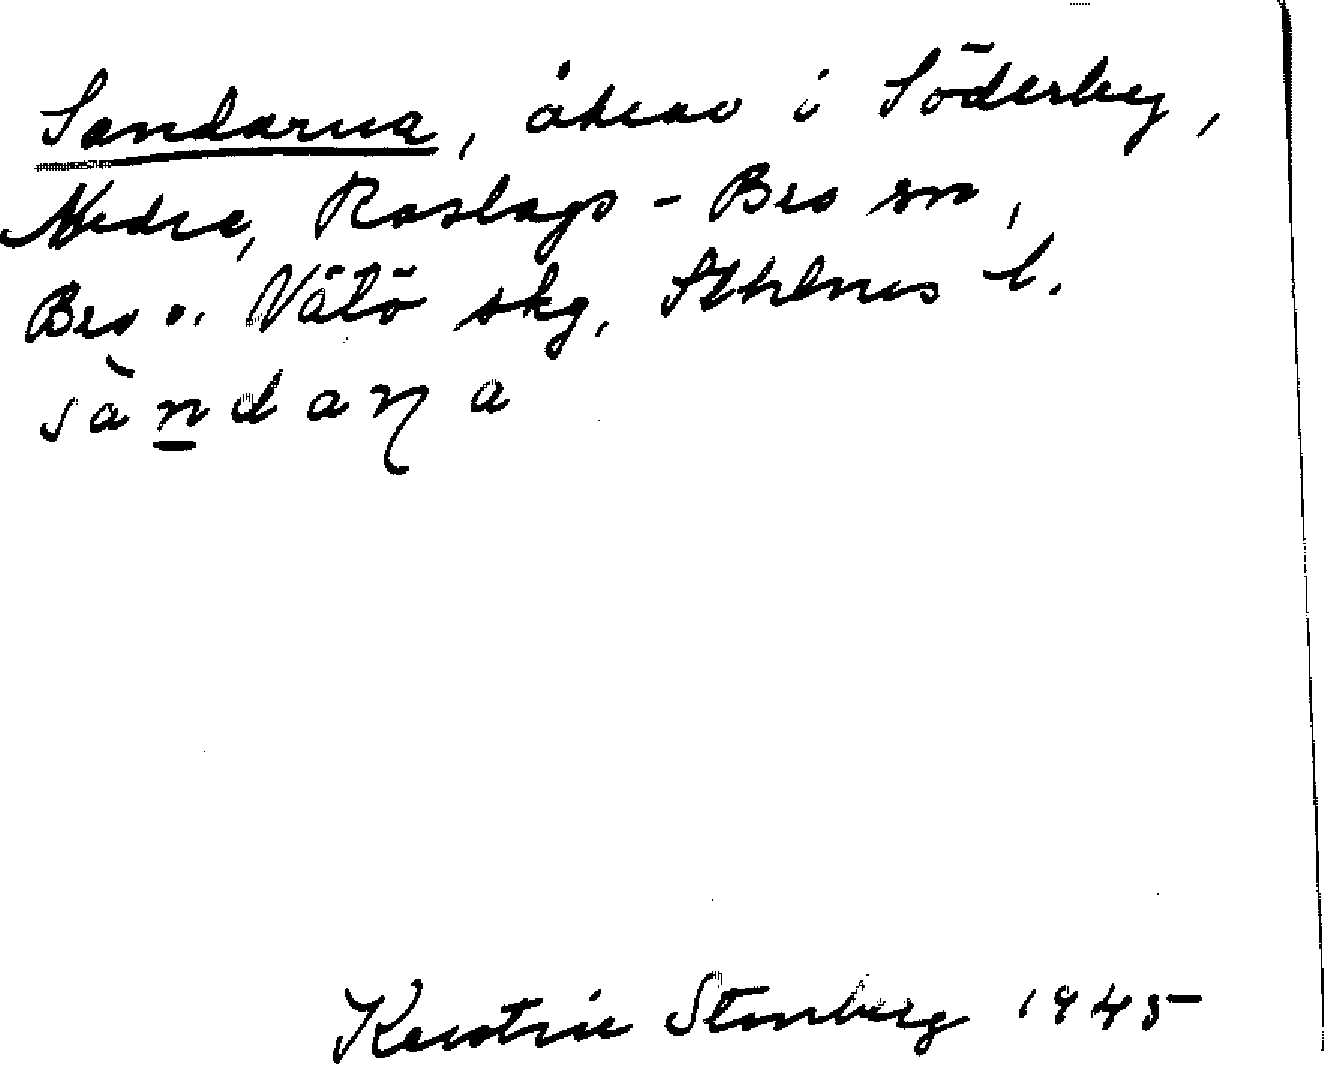 Sandarna, åkrar i Söderby,
Nedre, Roslags-Bro sn,
Bro o. Vätö skg, Sthlms l.
sàn̲daṇa
Kerstin Stenberg 1945